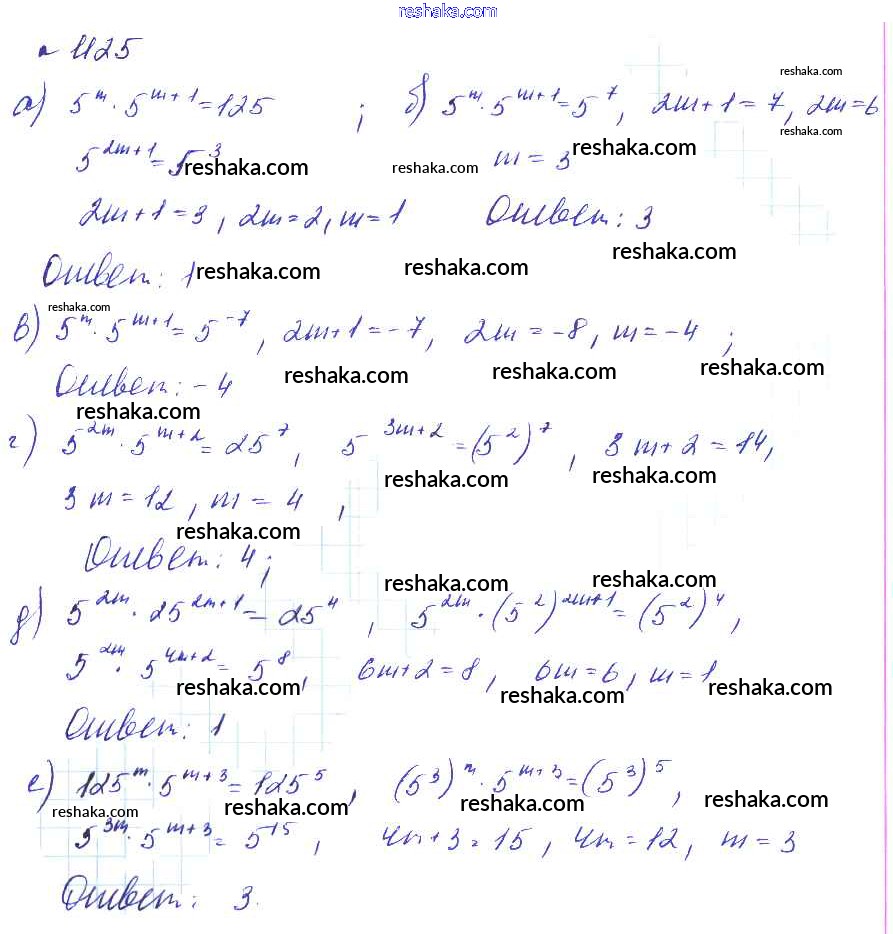 reshaka.com
№ 1125
а) 5^m · 5^(m+1) = 125 ; б) 5^m · 5^(m+1) = 5^7, 2m+1 = 7, 2m = 6
reshaka.com
reshaka.com
5^(2m+1) = 5^3 reshaka.com reshaka.com m = 3 reshaka.com
2m+1 = 3, 2m = 2, m = 1 Ответ: 3
reshaka.com
Ответ: 1 reshaka.com reshaka.com
reshaka.com
в) 5^m · 5^(m+1) = 5^(-7), 2m+1 = -7, 2m = -8, m = -4 ;
Ответ: -4 reshaka.com reshaka.com reshaka.com
reshaka.com
г) 5^(2m) · 5^(m+2) = 25^7, 5^(3m+2) = (5^2)^7, 3m+2 = 14,
reshaka.com reshaka.com
3m = 12, m = 4,
reshaka.com
Ответ: 4;
reshaka.com reshaka.com
д) 5^(2m) · 25^(2m+1) = 25^4, 5^(2m) · (5^2)^(2m+1) = (5^2)^4,
5^(2m) · 5^(4m+2) = 5^8, 6m+2 = 8, 6m = 6, m = 1
reshaka.com reshaka.com reshaka.com
Ответ: 1
е) 125^m · 5^(m+3) = 125^5, (5^3)^m · 5^(m+3) = (5^3)^5,
reshaka.com reshaka.com reshaka.com reshaka.com
5^(3m) · 5^(m+3) = 5^15, 4m+3 = 15, 4m = 12, m = 3
Ответ: 3.